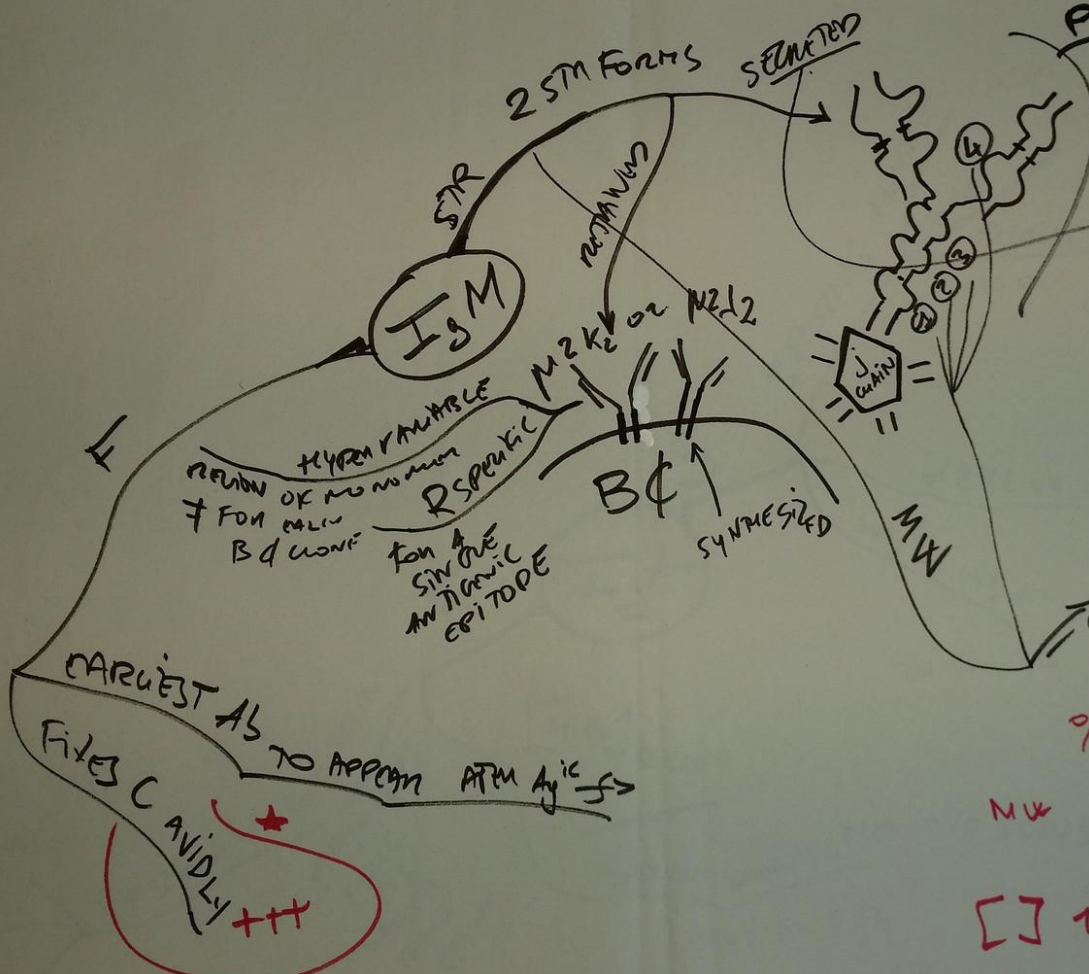 P
2 STR FORMS
SECRETED
STR
IgM
F
μ2K2 or μ2λ2
4
3
2
1
J
CHAIN
HYPERVARIABLE
REGION OF MONOMER
≠ FOR EACH
B ¢ CLONE
R SPECIFIC
FOR A
SINGLE
ANTIGENIC
EPITOPE
B¢
SYNTHESIZED
MW
EARLIEST Ab
TO APPEAR AFTER Agic
FIXES C AVIDLY
+++
%
MW
[ ]